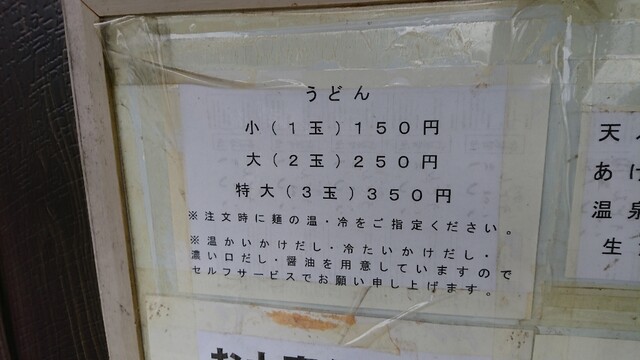 うどん
小(1玉)150円
大(2玉)250円
特大(3玉)350円
※注文時に麺の温・冷をご指定ください。
※温かいかけだし・冷たいかけだし・
濃い口だし・醤油を用意していますので
セルフサービスでお願い申し上げます。
天
あげ
温泉
生